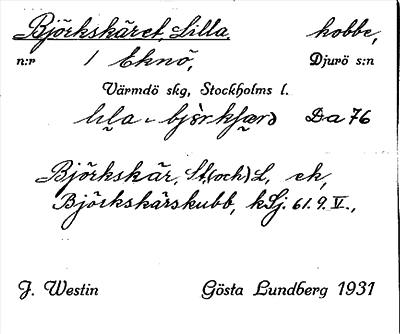 Björkskäret, Lilla, kobbe,
n:r 1 Eknö, Djurö s:n
Värmdö skg, Stockholms l.
lıla - bjö̀rkʃærə Da 76
Björkskär, St. (och) L., ek,
Björkskärskubb, kSj. 61. 9. V.,
J. Westin Gösta Lundberg 1931